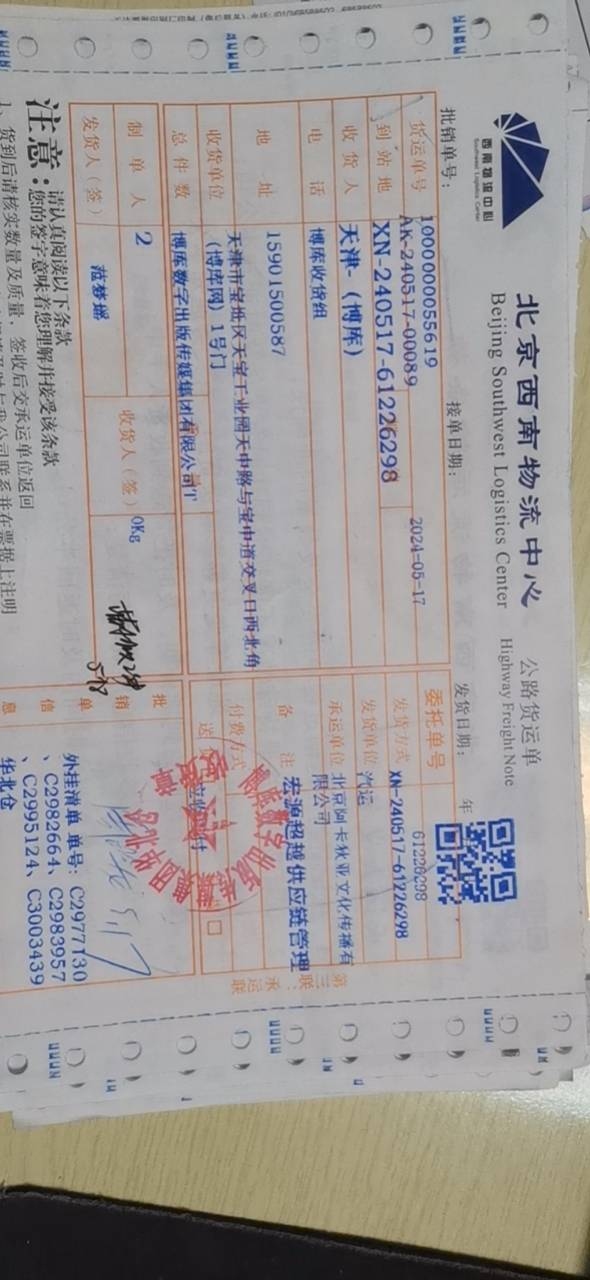 西南物流中心
Southwest Logistics Center
北京西南物流中心
Beijing Southwest Logistics Center
公路货运单
Highway Freight Note
批销单号：
接单日期：
发货日期：
年
1000000055619
货运单号
AK-240517-00089
2024-05-17
委托单号
61226298
到站地
XN-240517-61226298
发货方式
XN-240517-61226298
收货人
天津-（博库）
发货单位
汽运
电话
博库收货组
承运单位
北京阿卡狄亚文化传播有限公司
地址
15901500587
备注
宏源超越供应链管理
天津市宝坻区天宝工业园天中路与宝中道交叉口西北角
收货单位
（博库网）1号门
付费方式
总件数
博库数字出版传媒集团有限公司
送
制单人
2
收货人（签）
0Kg
发货人（签）
范梦媛
5/8
批销单信息
外挂清单 单号：C2977130
、C2982664、C2983957
、C2995124、C3003439
华北仓
第三联：承运联
注意：
请认真阅读以下条款
您的签字意味着您理解并接受该条款
1、货到后请核实数量及质量，签收后交承运单位返回